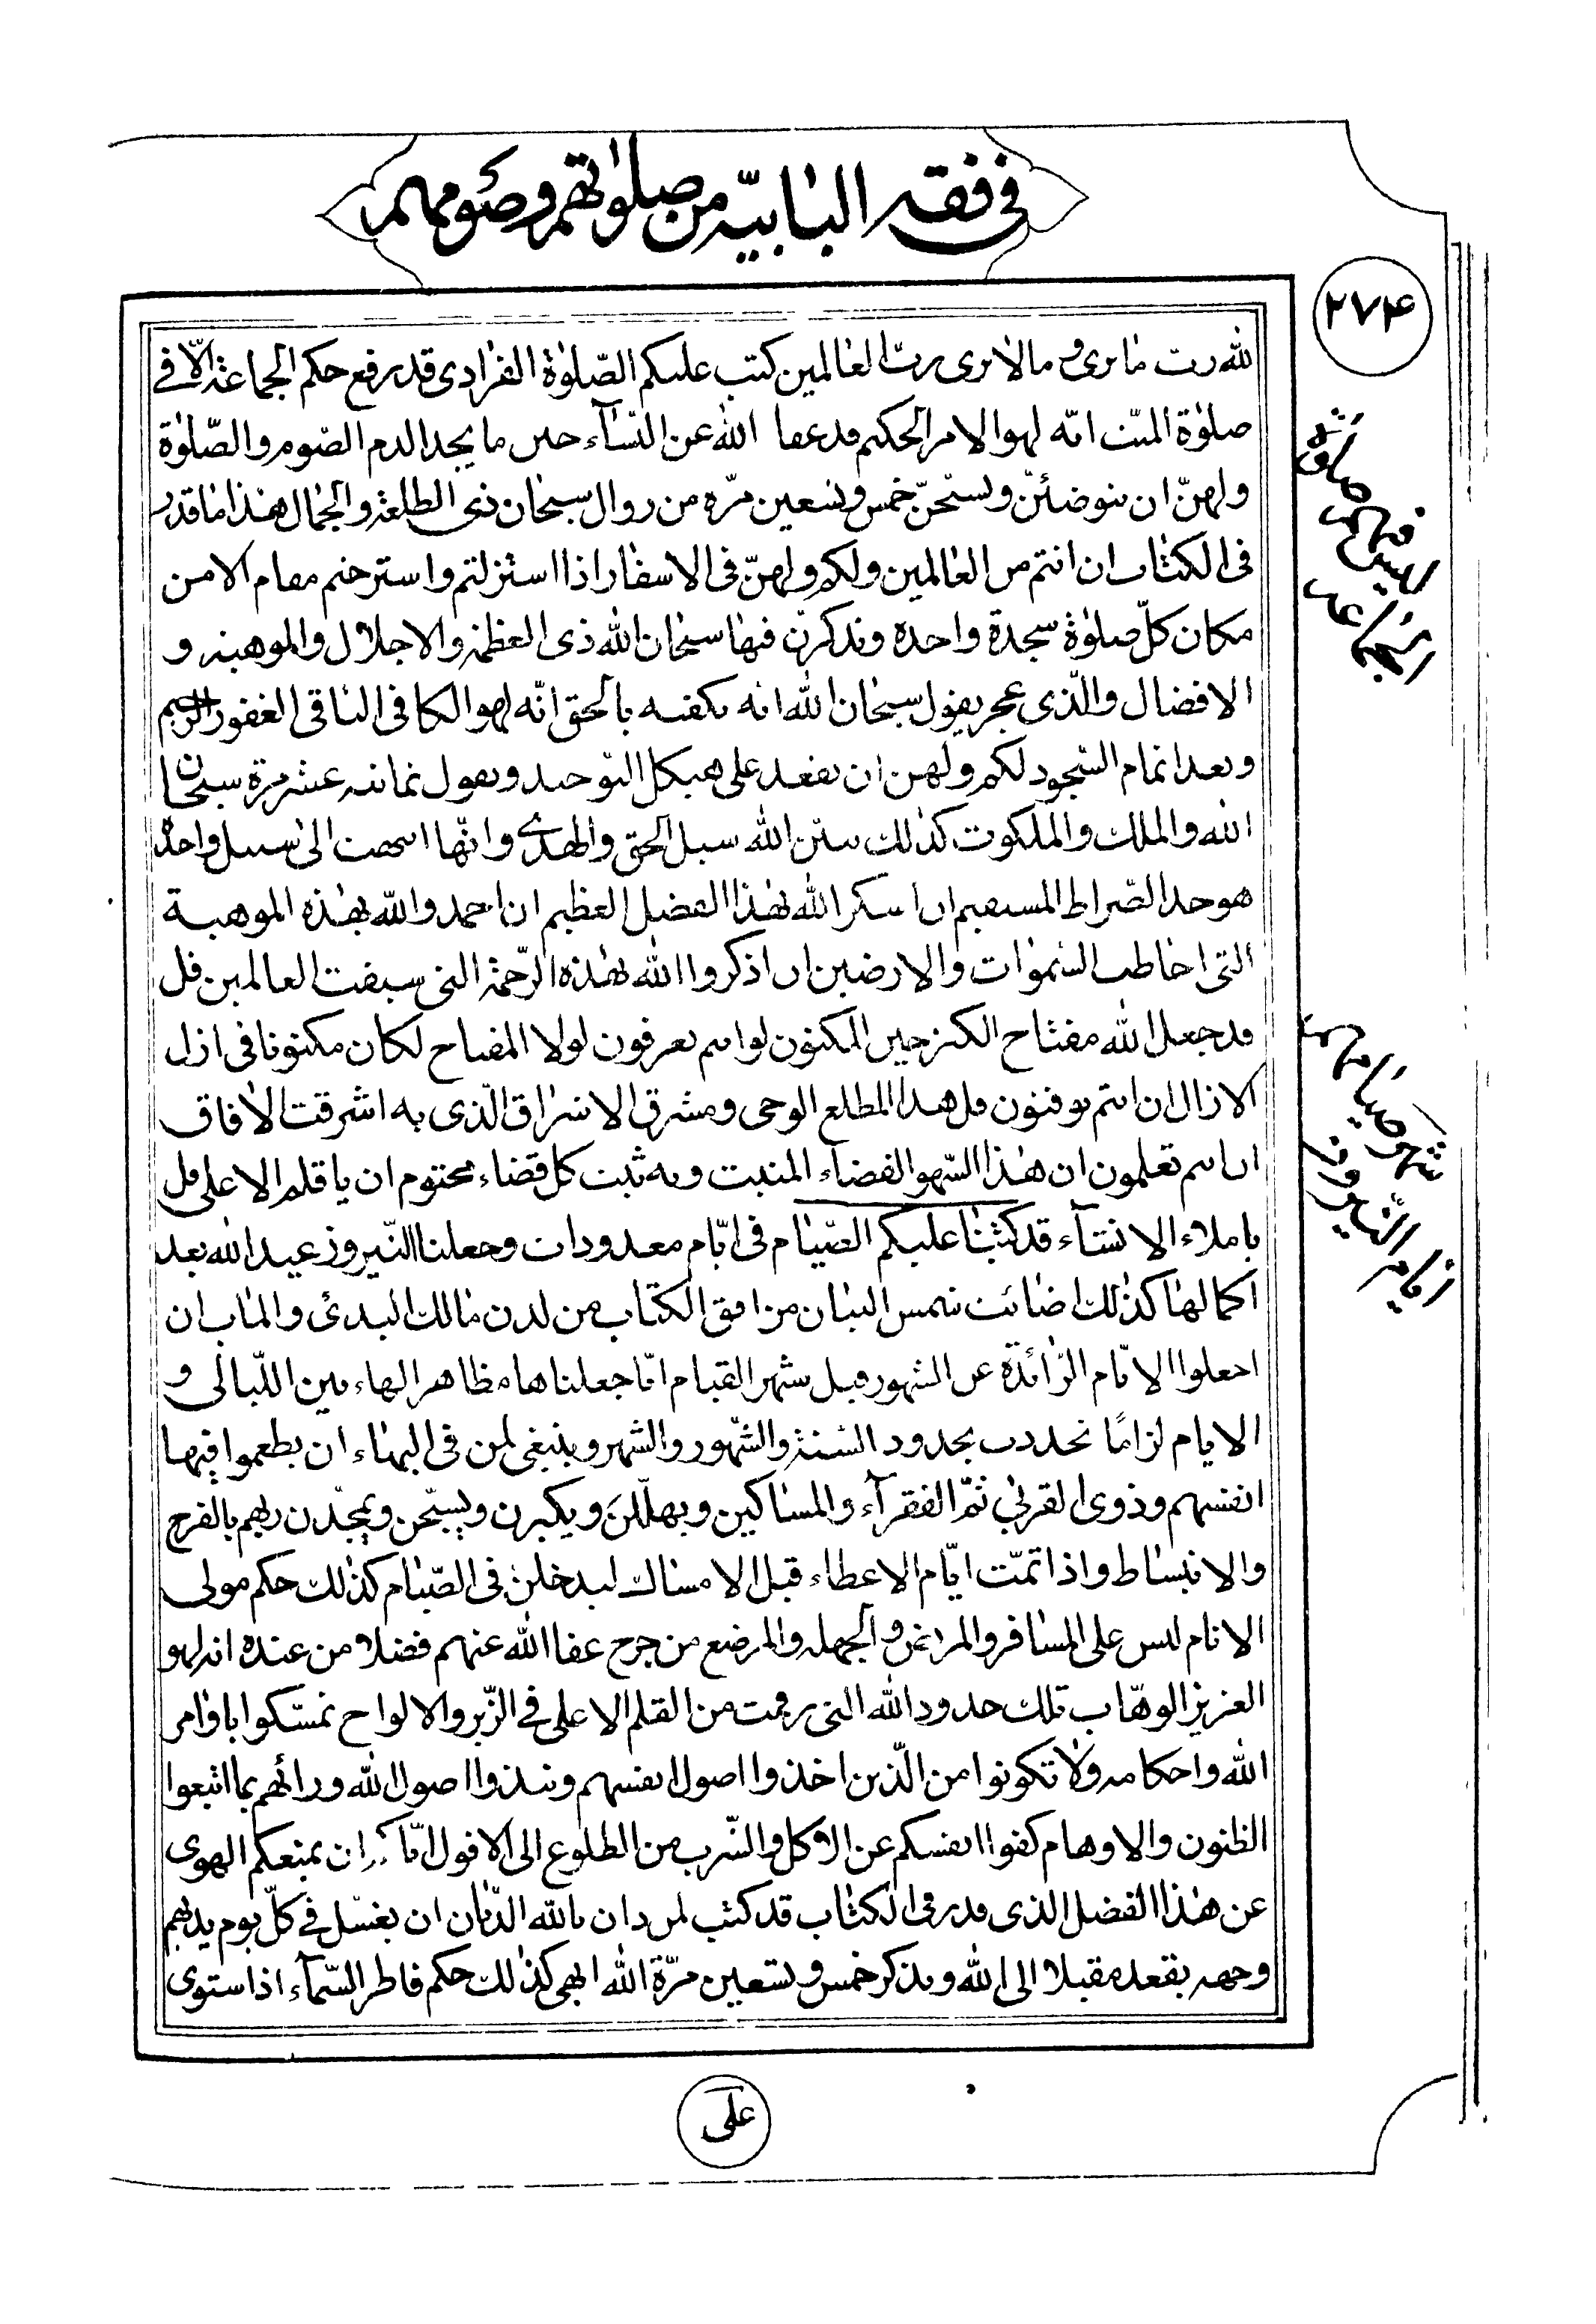 فی فقه البابیّه من صلوٰتهم وصَومهم
۲۷۴
لله رب ما یری و مالایری ربّ العالمین کتب علیکم الصّلوٰة الفرادی قد رفع حکم الجماعة الّا فی
صلوٰة المیّت انّه لهو الامر الحکیم قد عفا الله عن النّسآء حین ما یجدن الدم الصّوم والصّلوٰة
ولهنّ ان یتوضّئنّ ویسبّحنّ خمس وتسعین مرّة من زوال سبحان ذی الطلعة والجمال هذا ما قدر
فی الکتاب ان انتم من العالمین ولکم ولهنّ فی الاسفار اذا استنزلتم واسترحتم مقام الامن
مکان کلّ صلوٰة سجدة واحدة وتذکرن فیها سبحان الله ذی العظمة والاجلال والموهبة و
الافضال والّذی عجز یقول سبحان الله انه یکفیه بالحق انّه لهو الکافی الباقی الغفور الرحیم
وبعد اتمام السّجود لکم ولهن ان تقعد علی هیکل التوحید ویقول ثمانیه عشر مرّة سبحان
الله والملک والملکوت کذالک یبیّن الله سبل الحق والهدی وانّها انتهت الی سبیل واحد
هو هذا الصّراط المستقیم ان اشکر الله بهٰذا الفضل العظیم ان احمدوالله بهٰذه الموهبة
التی احاطت السّمٰوات والارضین ان اذکروا الله بهٰذه الرّحمة التی سبقت العالمین قل
قد جعل الله مفتاح الکنز حبی المکنون لو انتم تعرفون لولا المفتاح لکان مکنونا فی ازل
الازال ان انتم توقنون قل هذا المطلع الوحی ومشرق الاشراق الّذی به اشرقت الافاق
ان انتم تعلمون ان هٰذا السّهو القضآء المثبت وبه ثبت کل قضاء محتوم ان یا قلم الاعلی قل
یا ملاء الانشآء قد کتبنا علیکم الصّیام فی ایّام معدودات وجعلنا النّیروز عید الله بعد
اکمالها کذٰلک اضائت شمس البیان من افق الکتاب من لدن مالک البدئ والماب ان
اجعلوا الایّام الزّائدة عن الشهور قبل شهر القیام انّا جعلناها مظاهر الهاء بین اللّیالی و
الایام لزامًا تحددت بحدود السّنة والشّهور والشهر وینبغی لمن فی البهاء ان یطعموا فیها
انفسهم وذوی القربٰی ثمّ الفقرآء والمساکین ویهلّلنَ ویکبرن ویسبّحن ویمجّدن ربهم بالفرح
والانبساط واذا تمّت ایّام الاعطاء قبل الامساک لیدخلنّ فی الصّیام کذٰلک حکم مولی
الانام لیس علی المسافر والمرائض والجهله والمرضع من حرج عفا الله عنهم فضلا من عنده انه لهو
العزیز الوهّاب تلک حدود الله التی رقمت من القلم الاعلی فی الزّبر والالواح تمسّکوا باوامر
الله واحکامه ولا تکونوا من الّذین اخذوا اصول انفسهم ونبذوا اصول الله ورائهم بما اتبعوا
الظنون والاوهام کفوا انفسکم عن الاکل والشّرب من الطلوع الی الافول ایّاکم ان یمنعکم الهوی
عن هٰذا الفضل الذی قدر فی الکتاب قد کتب لمن دان بالله الدّیان ان یغسل فی کلّ یوم یدیهم
وجهه یقعد مقبلا الی الله ویذکر خمس وتسعین مرّة الله ابهی کذٰلک حکم فاطر السّمآء اذا ستوی
لیس فی صلوٰتهم
الجماعه
شهر صیامهم
ایام النّیروز
علی